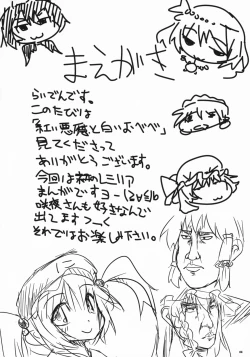 まえがき
らいでんです。
このたびは
「紅い悪魔と白いよべべ」
見てくださって
ありがとうございます。
今回は レミリア
まんがですヨー
咲夜さんも好きなんで
出てますっ
それではお楽しみ下さい。